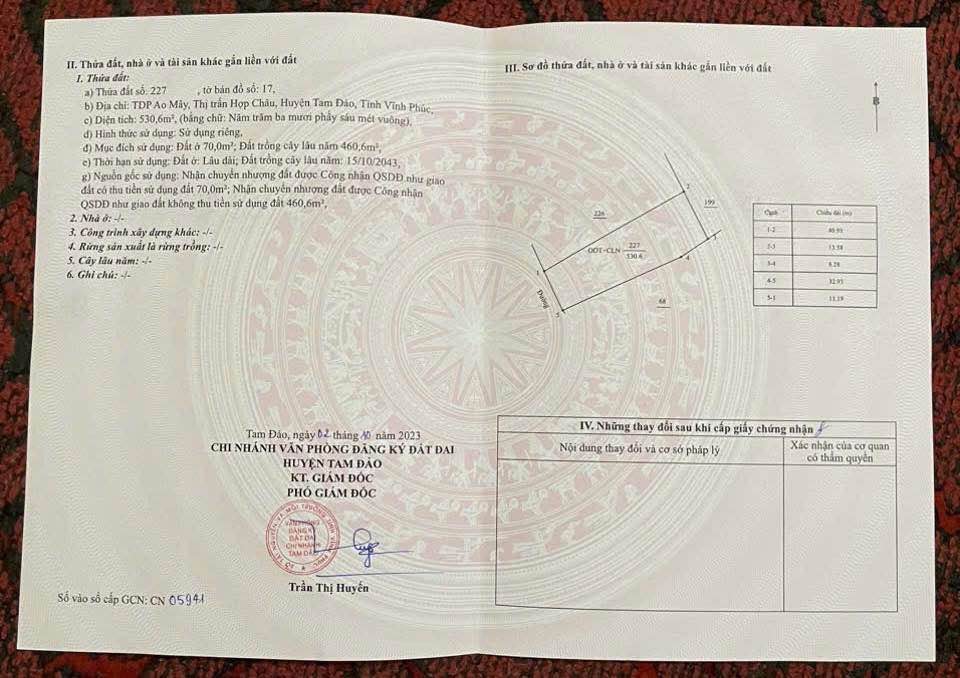 II. Thửa đất, nhà ở và tài sản khác gắn liền với đất
1. Thửa đất:
a) Thửa đất số: 227 , tờ bản đồ số: 17,
b) Địa chỉ: TDP Ao Mây, Thị trấn Hợp Châu, Huyện Tam Đảo, Tỉnh Vĩnh Phúc,
c) Diện tích: 530,6m², (bằng chữ: Năm trăm ba mươi phẩy sáu mét vuông),
d) Hình thức sử dụng: Sử dụng riêng,
đ) Mục đích sử dụng: Đất ở 70,0m²; Đất trồng cây lâu năm 460,6m²,
e) Thời hạn sử dụng: Đất ở: Lâu dài; Đất trồng cây lâu năm: 15/10/2043,
g) Nguồn gốc sử dụng: Nhận chuyển nhượng đất được Công nhận QSDĐ như giao
đất có thu tiền sử dụng đất 70,0m²; Nhận chuyển nhượng đất được Công nhận
QSDĐ như giao đất không thu tiền sử dụng đất 460,6m²,
2. Nhà ở: -/-
3. Công trình xây dựng khác: -/-
4. Rừng sản xuất là rừng trồng: -/-
5. Cây lâu năm: -/-
6. Ghi chú: -/-
Tam Đảo, ngày 02 tháng 10 năm 2023
CHI NHÁNH VĂN PHÒNG ĐĂNG KÝ ĐẤT ĐAI
HUYỆN TAM ĐẢO
KT. GIÁM ĐỐC
PHÓ GIÁM ĐỐC
VĂN PHÒNG
ĐĂNG KÝ
ĐẤT ĐAI
CHI NHÁNH
TAM ĐẢO
Trần Thị Huyến
Số vào sổ cấp GCN: CN 05941
III. Sơ đồ thửa đất, nhà ở và tài sản khác gắn liền với đất
B
2
199
226
3
227
ODT-CLN
530.6
4
1
Đường
5
68
Cạnh Chiều dài (m)
1-2 40.95
2-3 13.58
3-4 8.28
4-5 32.95
5-1 11.19
IV. Những thay đổi sau khi cấp giấy chứng nhận
Nội dung thay đổi và cơ sở pháp lý
Xác nhận của cơ quan
có thẩm quyền